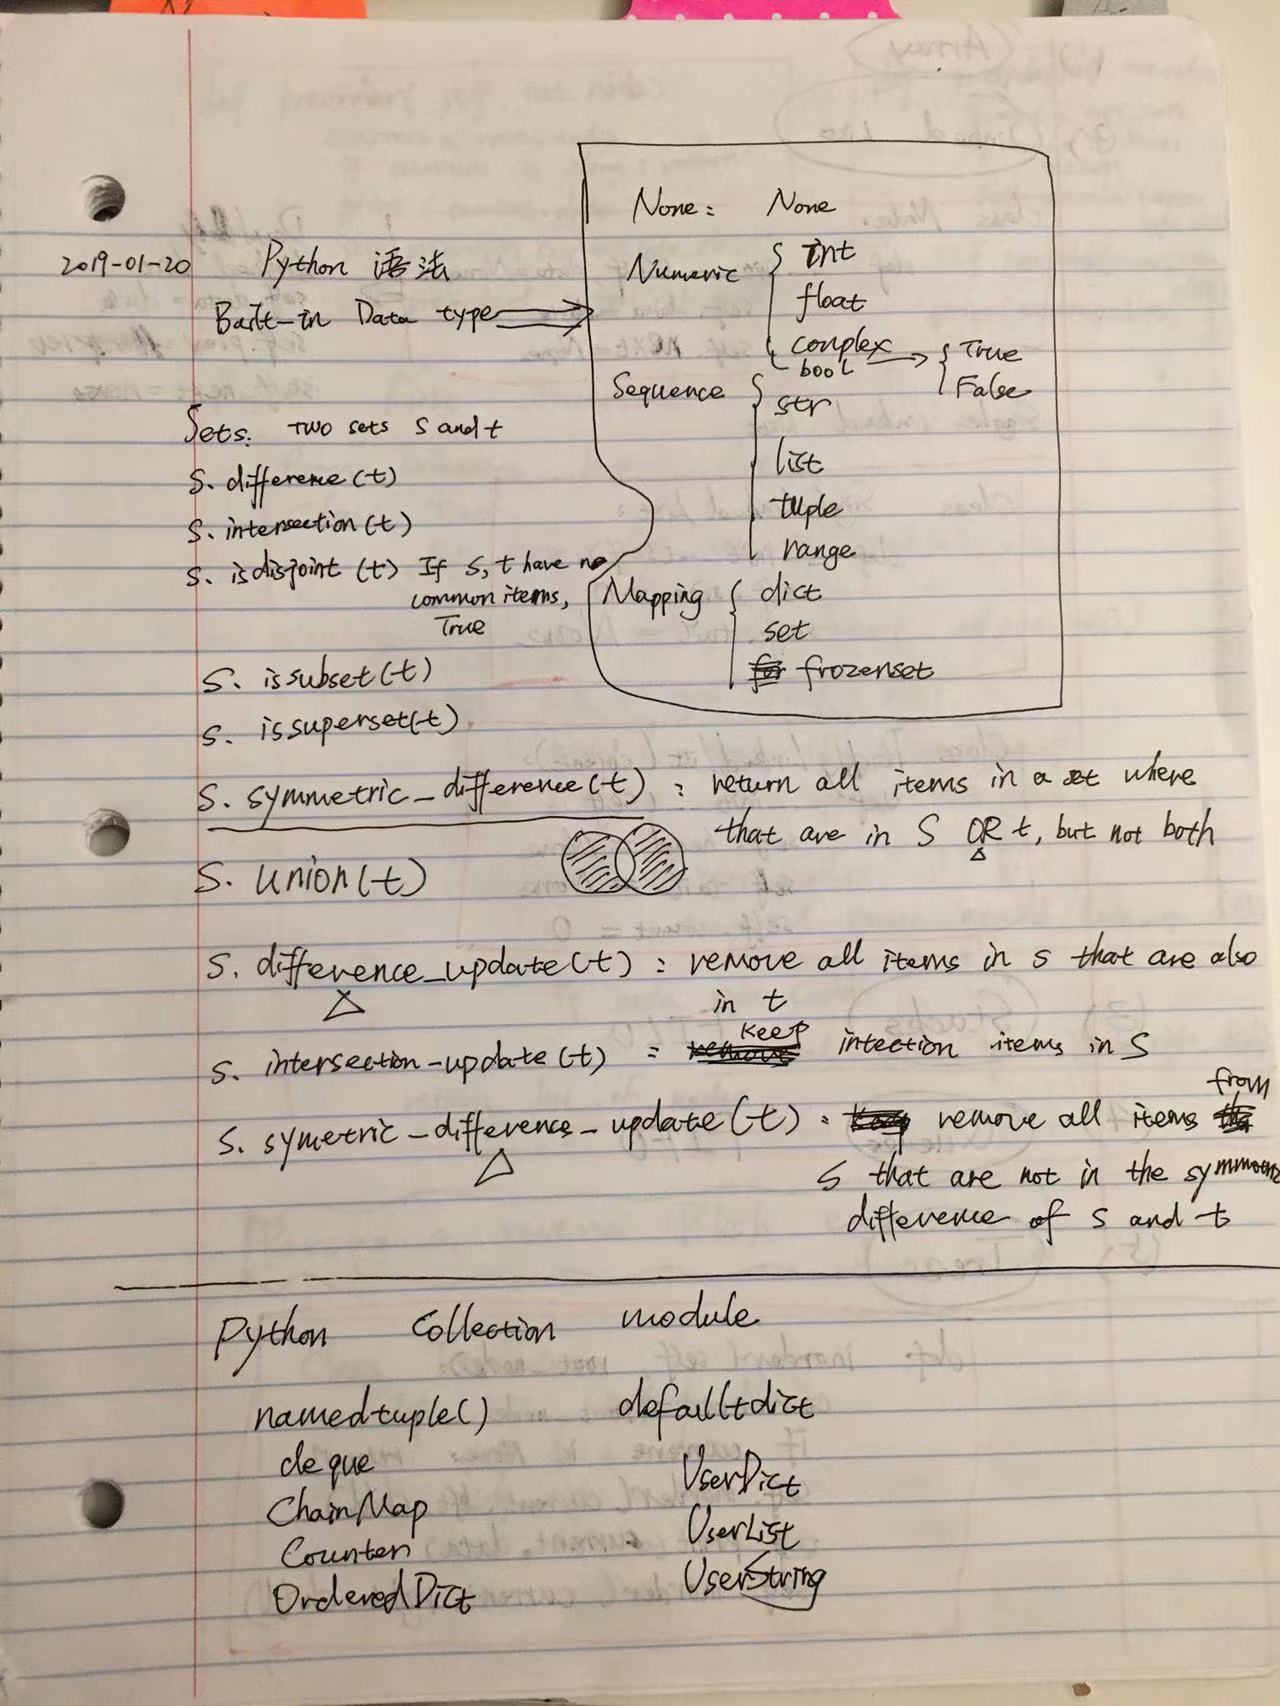 None: None
2019-01-20 Python 语法
Numeric { int
float
complex
bool → { True
False
Built-in Data type ⇒
Sequence { str
list
tuple
range
Mapping { dict
set
frozenset
Sets: Two sets s and t
s. difference(t)
s. intersection(t)
s. isdisjoint (t) If s, t have no
common items,
True
s. issubset(t)
s. issuperset(t)
s. symmetric_difference(t) : return all items in a set where
that are in s OR t, but not both
s. union(t)
s. difference_update(t) : remove all items in s that are also
in t
s. intersection-update(t) : keep intection items in s
s. symetric_difference_update(t) : remove all items from
s that are not in the
difference of s and t
Python Collection module
namedtuple() defaultdict
deque UserDict
ChainMap UserList
Counter UserString
OrderedDict